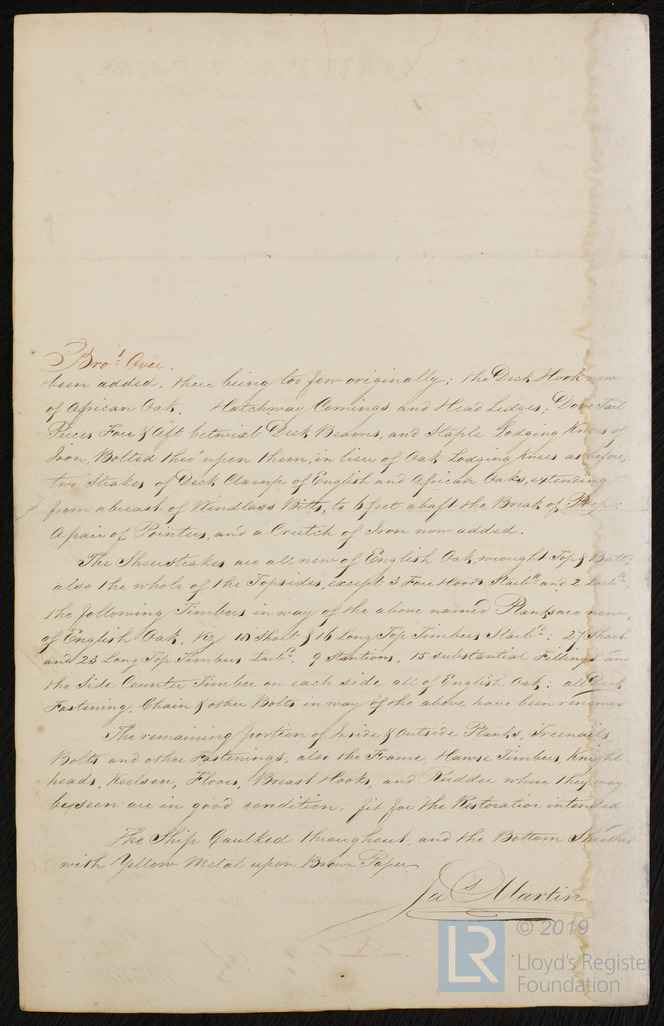 Bro.t Over.
been added. there being too few originally; the Deck Hook new
of African Oak. Hatchway Comings and Head Ledges, Dove Tail
Pieces Fore & Aft betwixt Deck Beams, and Staple Lodging Knees of
Iron, Bolted thro' upon them, in lieu of Oak Lodging Knees as before;
two Strakes of Deck Clamp of English and African Oaks, extending
from abreast of Windlass Bitts, to 6 feet abaft the Break of Poop;
A pair of Pointers, and a Crutch of Iron now added.
The Sheerstrakes are all new of English Oak, wrought Top & Butt,
also the whole of the Topsides, except 3 Fore Hoods Starbd. and 2 Larbd.,
the following Timbers in way of the above named Planks are new,
of English Oak, Viz 18 Short & 16 Long Top Timbers Starbd.; 27 Short
and 23 Long Top Timbers Larbd. 9 Stantions, 15 substantial Fillings and
the Side Counter Timber on each side all of English Oak; all Deck
Fastening, Chain & other Bolts in way of the above have been renewed
The remaining portion of Inside & Outside Planks, Treenails
Bolts and other Fastenings, also the Frame, Hawse Timbers, Knight-
heads, Keelson, Floors, Breast Hooks, and Rudder where they may
be seen are in good condition, fit for the Restoration intended
The Ship Caulked throughout, and the Bottom Sheathed
with Yellow Metal upon Brown Paper
Jas Martin
© 2019
LR
Lloyd's Register
Foundation